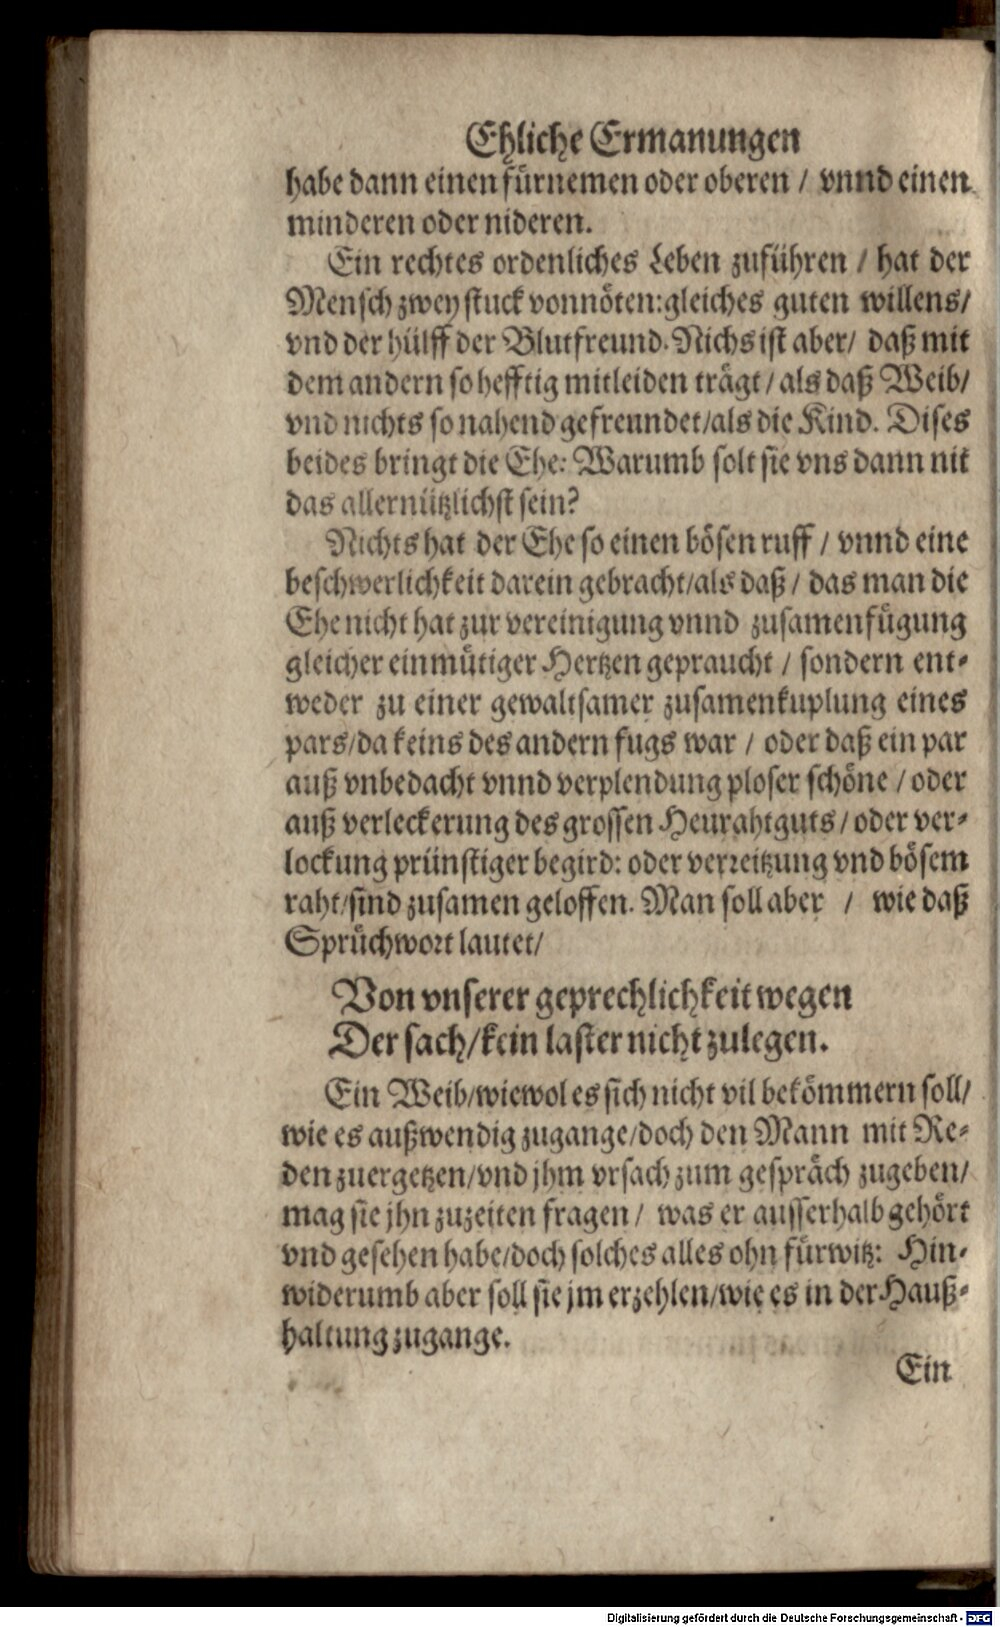 Ehliche Ermanungen
habe dann einen fürnemen oder oberen / vnnd einen
minderen oder nideren.
Ein rechtes ordenliches Leben zuführen / hat der
Mensch zwey stuck vonnöten: gleiches guten willens/
vnd der hülff der Blutfreund. Nichs ist aber/ daß mit
dem andern so hefftig mitleiden trägt / als daß Weib/
vnd nichts so nahend gefreundet/als die Kind. Dises
beides bringt die Ehe: Warumb solt sie vns dann nit
das allernützlichst sein?
Nichts hat der Ehe so einen bösen ruff / vnnd eine
beschwerlichkeit darein gebracht/als daß / das man die
Ehe nicht hat zur vereinigung vnnd zusamenfügung
gleicher einmütiger Hertzen gepraucht / sondern ent-
weder zu einer gewaltsamer zusamenkuplung eines
pars/da keins des andern fugs war / oder daß ein par
auß vnbedacht vnnd verplendung ploser schöne / oder
auß verleckerung des grossen Heurahtguts / oder ver-
lockung prünstiger begird: oder verreitzung vnd bösem
raht/sind zusamen geloffen. Man soll aber / wie daß
Sprüchwort lautet/
Von vnserer geprechlichkeit wegen
Der sach/kein laster nicht zulegen.
Ein Weib/wiewol es sich nicht vil bekömmern soll/
wie es außwendig zugange/doch den Mann mit Re-
den zuergetzen/vnd jhm vrsach zum gespräch zugeben/
mag sie jhn zuzeiten fragen / was er ausserhalb gehört
vnd gesehen habe/doch solches alles ohn fürwitz: Hin-
widerumb aber soll sie jm erzehlen/wie es in der Hauß-
haltung zugange.
Ein
Digitalisierung gefördert durch die Deutsche Forschungsgemeinschaft - DFG